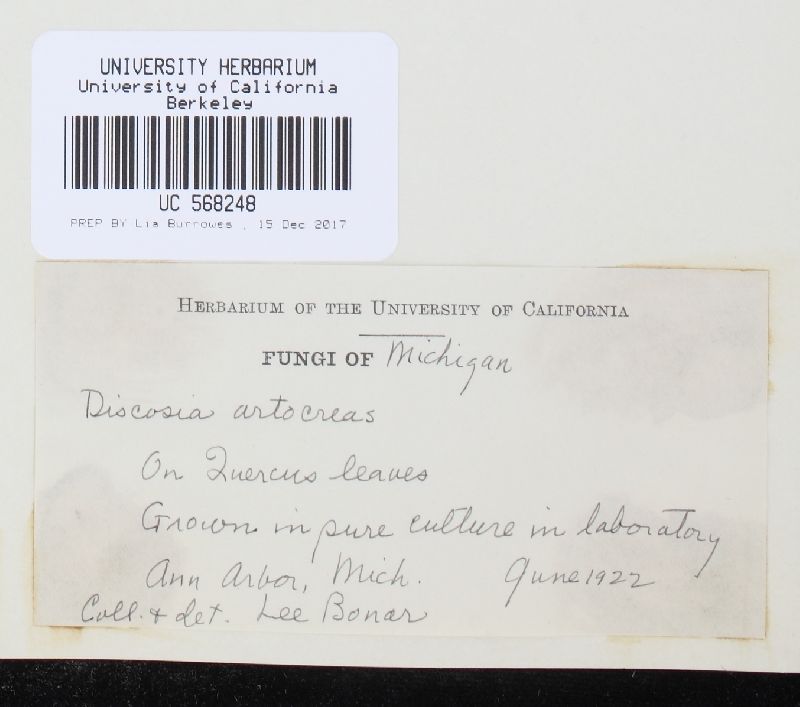 UNIVERSITY HERBARIUM
University of California
Berkeley
UC 568248
PREP BY Lia Burrowes , 15 Dec 2017
HERBARIUM OF THE UNIVERSITY OF CALIFORNIA
FUNGI OF Michigan
Discosia artocreas
On Quercus leaves
Grown in pure culture in laboratory
Ann Arbor, Mich. June 1922
Coll. & det. Lee Bonar